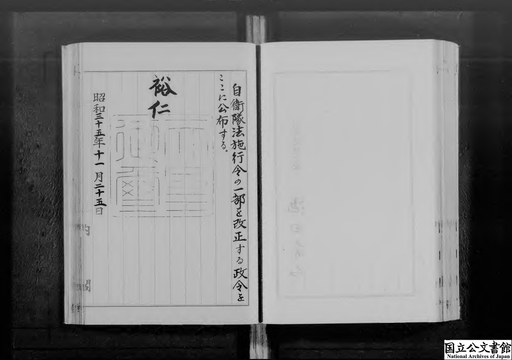 自衛隊法施行令の一部を改正する政令を
ここに公布する。
裕仁
昭和三十五年十一月二十五日
国立公文書館
National Archives of Japan